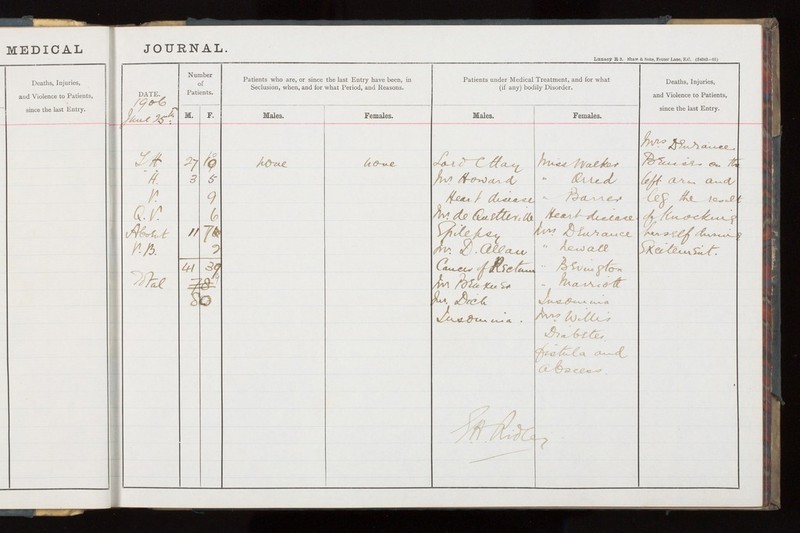 MEDICAL JOURNAL.
Lunacy
Deaths, Injuries,
and Violence to Patients,
since the last Entry.
DATE.
Number
of
Patients.
M. F.
Patients who are, or since the last Entry have been, in
Seclusion, when, and for what Period, and Reasons.
Males. Females.
Patients under Medical Treatment, and for what
(if any) bodily Disorder.
Males. Females.
Deaths, Injuries,
and Violence to Patients,
since the last Entry.
1906
June 25th
T.H 27 10
H. 3 5
V. 9
Q.V. 6
Absent 11 7
V.B. 2
41 39
Total 78
80
none
none
Lord C Hay
Mr Howard
Heart disease
Mr de
Epilepsy
Mr D. Allan
Cancer of Rectum
Mr
Mr Dock
Insomnia.
Miss Walker
" Orred
" Barrer
Heart disease
Mrs Durance
" Newall
" Bevington
" Marriott
Insomnia
Mrs Willis
Diabetes,
fistula and
abscess.
Mrs Durance
Bruises on the
left arm and
leg the result
of knocking
herself during
Excitement.
Ridley